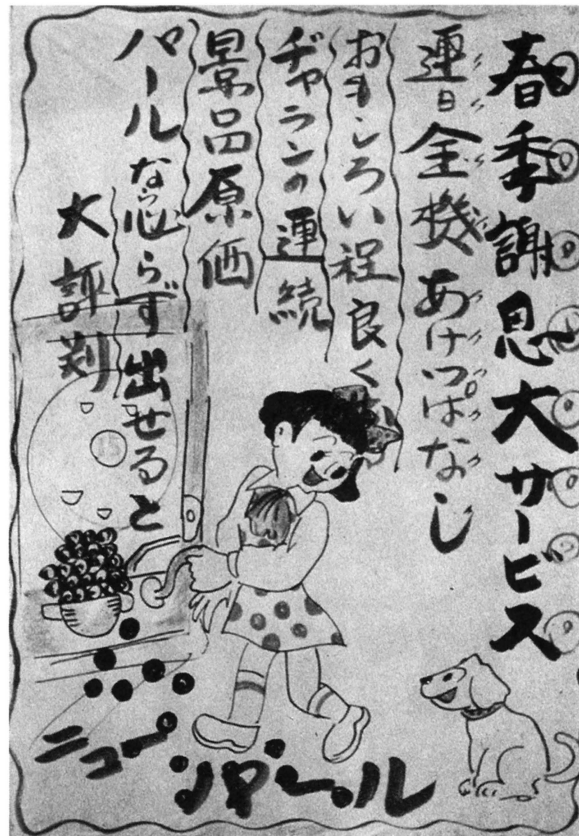 春季謝恩大サービス
連日全機あけっぱなし
おもしろい程良く
ヂャランの連続
景品原価
パールなら必らず出せると
大評判
ニュー
パール